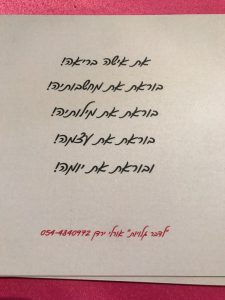 את אישה בריאה!
בוראת את מחשבותיה!
בוראת את מילותיה!
בוראת את עצמה!
ובוראת את יומה!
"לדבר גלויות" אורלי ירדן 054-4840992